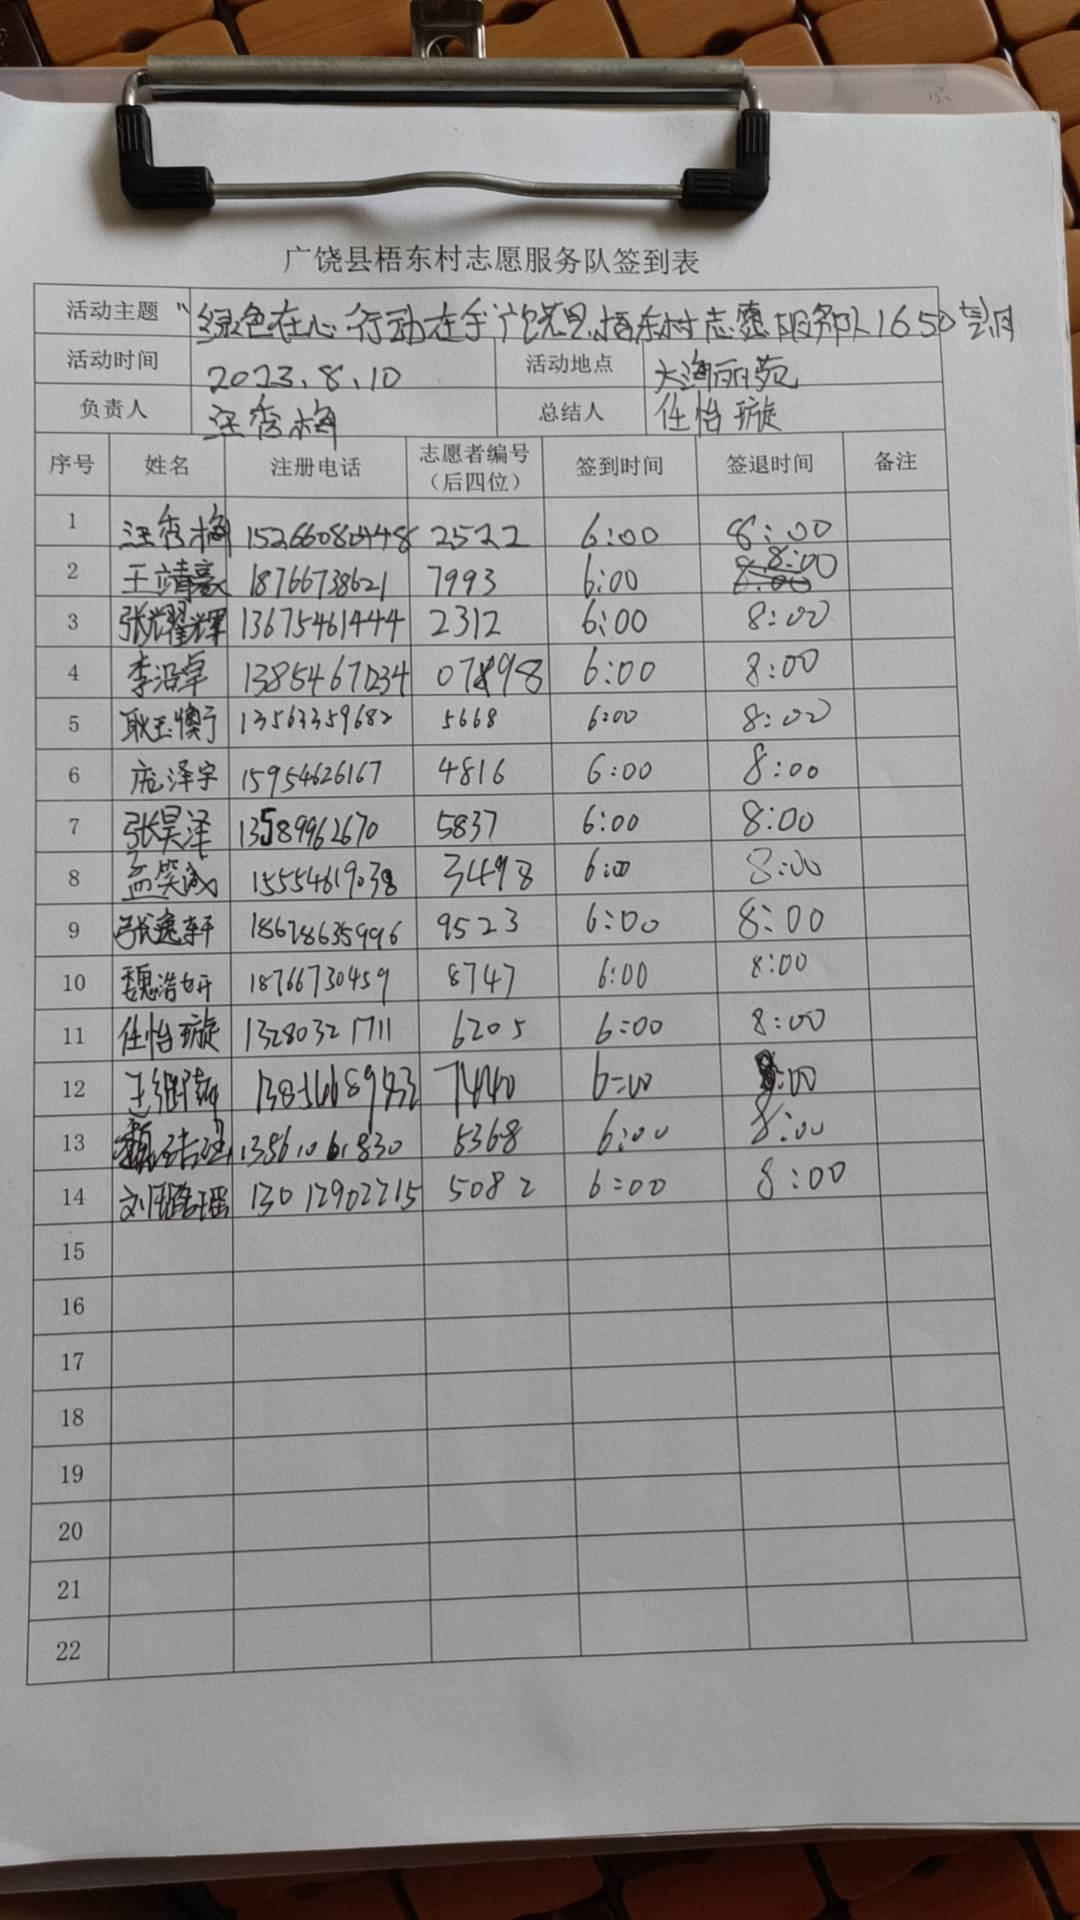 广饶县梧东村志愿服务队签到表
活动主题 "绿色在心 行动在手"广饶县梧东村志愿服务队1650
活动时间 2023.8.10 活动地点 大海丽苑
负责人 汪秀梅 总结人 任怡璇
序号 姓名 注册电话 志愿者编号（后四位） 签到时间 签退时间 备注
1 汪秀梅 15266080448 2522 6:00 8:00
2 王靖豪 18766738621 7993 6:00 8:00
3 张耀辉 13675461444 2312 6:00 8:00
4 李沿卓 6:00 8:00
5 13563359682 5668 6:00 8:00
6 庞泽宇 15954626167 4816 6:00 8:00
7 张昊泽 13589962670 5837 6:00 8:00
8 孟笑诚 15554619038 3498 6:00 8:00
9 张逸轩 18678635996 9523 6:00 8:00
10 魏浩妍 18766730459 8747 6:00 8:00
11 任怡璇 13280321711 6205 6:00 8:00
12 7440 6:00 8:00
13 13561061830 5368 6:00 8:00
14 13012902215 5082 6:00 8:00
15
16
17
18
19
20
21
22